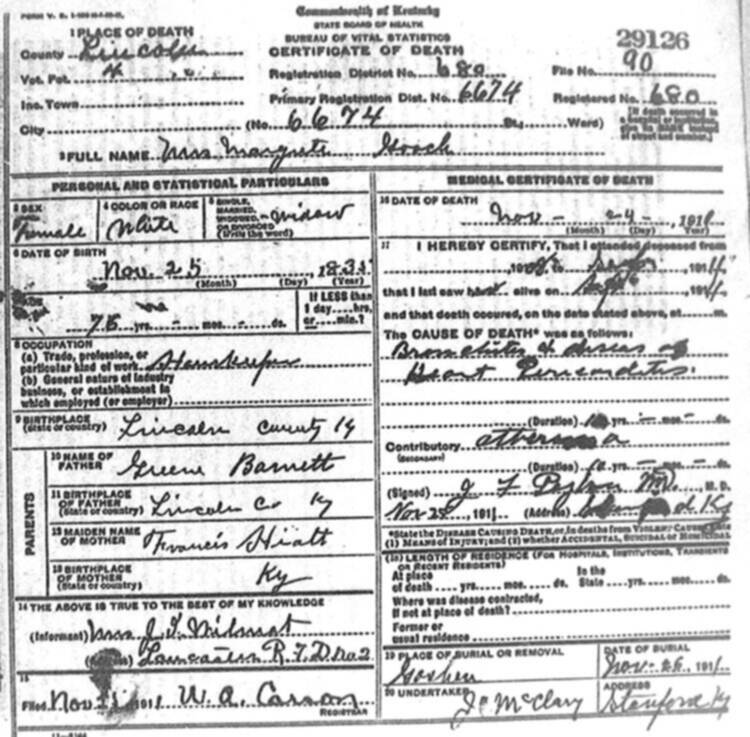 Commonwealth of Kentucky
STATE BOARD OF HEALTH
BUREAU OF VITAL STATISTICS
CERTIFICATE OF DEATH
29126
1 PLACE OF DEATH
County Lincoln
Vot. Pct. 4
Inc. Town
City
Registration District No. 680
File No. 90
Primary Registration Dist. No. 6674
Registered No. 680
(No. 6674 St.; Ward)
[If death occurred in a hospital or institution, give its NAME instead of street and number.]
2 FULL NAME Mrs Margrete Gooch
PERSONAL AND STATISTICAL PARTICULARS
3 SEX
female
4 COLOR OR RACE
White
5 SINGLE, MARRIED, WIDOWED, OR DIVORCED (Write the word)
widow
6 DATE OF BIRTH
Nov. 25 1835
(Month) (Day) (Year)
75 yrs. - mos. - ds.
If LESS than 1 day....hrs. or....min.?
8 OCCUPATION
(a) Trade, profession, or particular kind of work
(b) General nature of industry
business, or establishment in
which employed (or employer)
9 BIRTHPLACE
(State or country) Lincoln county Ky
PARENTS
10 NAME OF FATHER Greene Barnett
11 BIRTHPLACE OF FATHER (State or country) Lincoln Co Ky
12 MAIDEN NAME OF MOTHER Francis Hiatt
13 BIRTHPLACE OF MOTHER (State or country) Ky
14 THE ABOVE IS TRUE TO THE BEST OF MY KNOWLEDGE
(Informant) Mrs J. F.
(Address) Lancaster R.F.D no 2
15
Filed Nov 191 W. A. Carson
REGISTRAR
MEDICAL CERTIFICATE OF DEATH
16 DATE OF DEATH
Nov - 24 - 191
(Month) (Day) (Year)
17 I HEREBY CERTIFY, That I attended deceased from
to 1911,
that I last saw alive on Sept 1911,
and that death occured, on the date stated above, at m.
The CAUSE OF DEATH* was as follows:
Bronchitis & diseas of
Heart Pericarditis.
(Duration) yrs. - mos. - ds.
Contributory
(SECONDARY)
(Duration) 10 yrs. - mos. - ds.
(Signed) J. F. M.D.
Nov 191 (Address) Ky
*State the DISEASE CAUSING DEATH, or, in deaths from VIOLENT CAUSES
(1) MEANS OF INJURY; and (2) whether ACCIDENTAL, SUICIDAL or HOMICIDAL
(18) LENGTH OF RESIDENCE (FOR HOSPITALS, INSTITUTIONS, TRANSIENTS OR RECENT RESIDENTS)
At place of death yrs. mos. ds. In the State yrs. mos. ds.
Where was disease contracted, if not at place of death?
Former or usual residence
19 PLACE OF BURIAL OR REMOVAL
Goshen
DATE OF BURIAL
Nov - 26, 1911
20 UNDERTAKER
J C McClary
ADDRESS
Stanford Ky